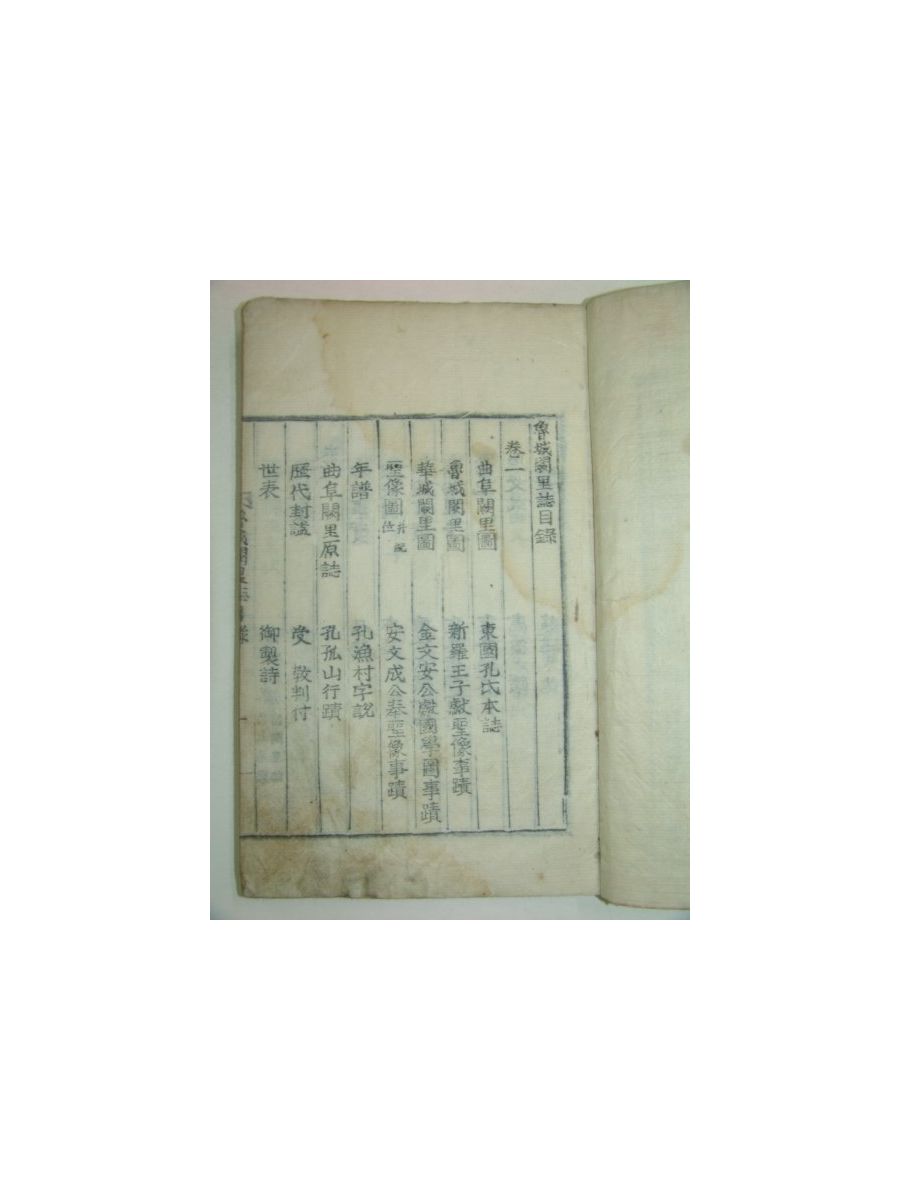 魯城闕里誌目錄
卷一
曲阜闕里圖　東國孔氏本誌
魯城闕里圖　新羅王子獻聖像事蹟
華城闕里圖　金文安公獻國學圖事蹟
聖像圖　位　安文成公奉聖像事蹟
年譜　孔漁村字說
曲阜闕里原誌　孔孤山行蹟
歷代封諡　受　敎判付
世表　御製詩